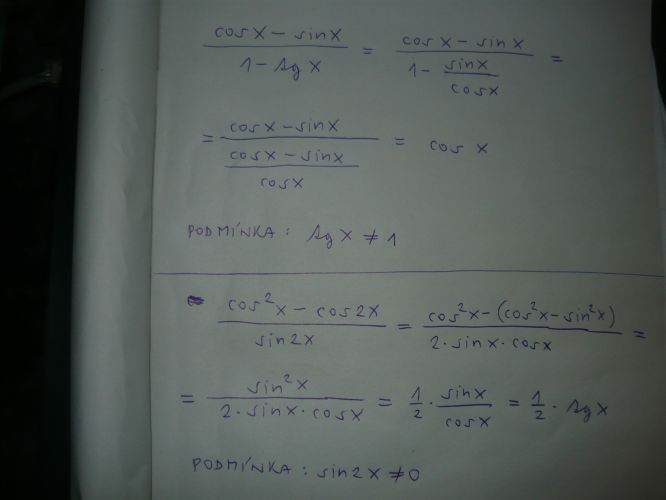 (cos x - sin x) / (1 - tg x) = (cos x - sin x) / (1 - sin x / cos x) =
= (cos x - sin x) / ((cos x - sin x) / cos x) = cos x
PODMÍNKA: tg x ≠ 1
(cos²x - cos 2x) / (sin 2x) = (cos²x - (cos²x - sin²x)) / (2 · sin x · cos x) =
= (sin²x) / (2 · sin x · cos x) = 1/2 · (sin x / cos x) = 1/2 · tg x
PODMÍNKA: sin 2x ≠ 0